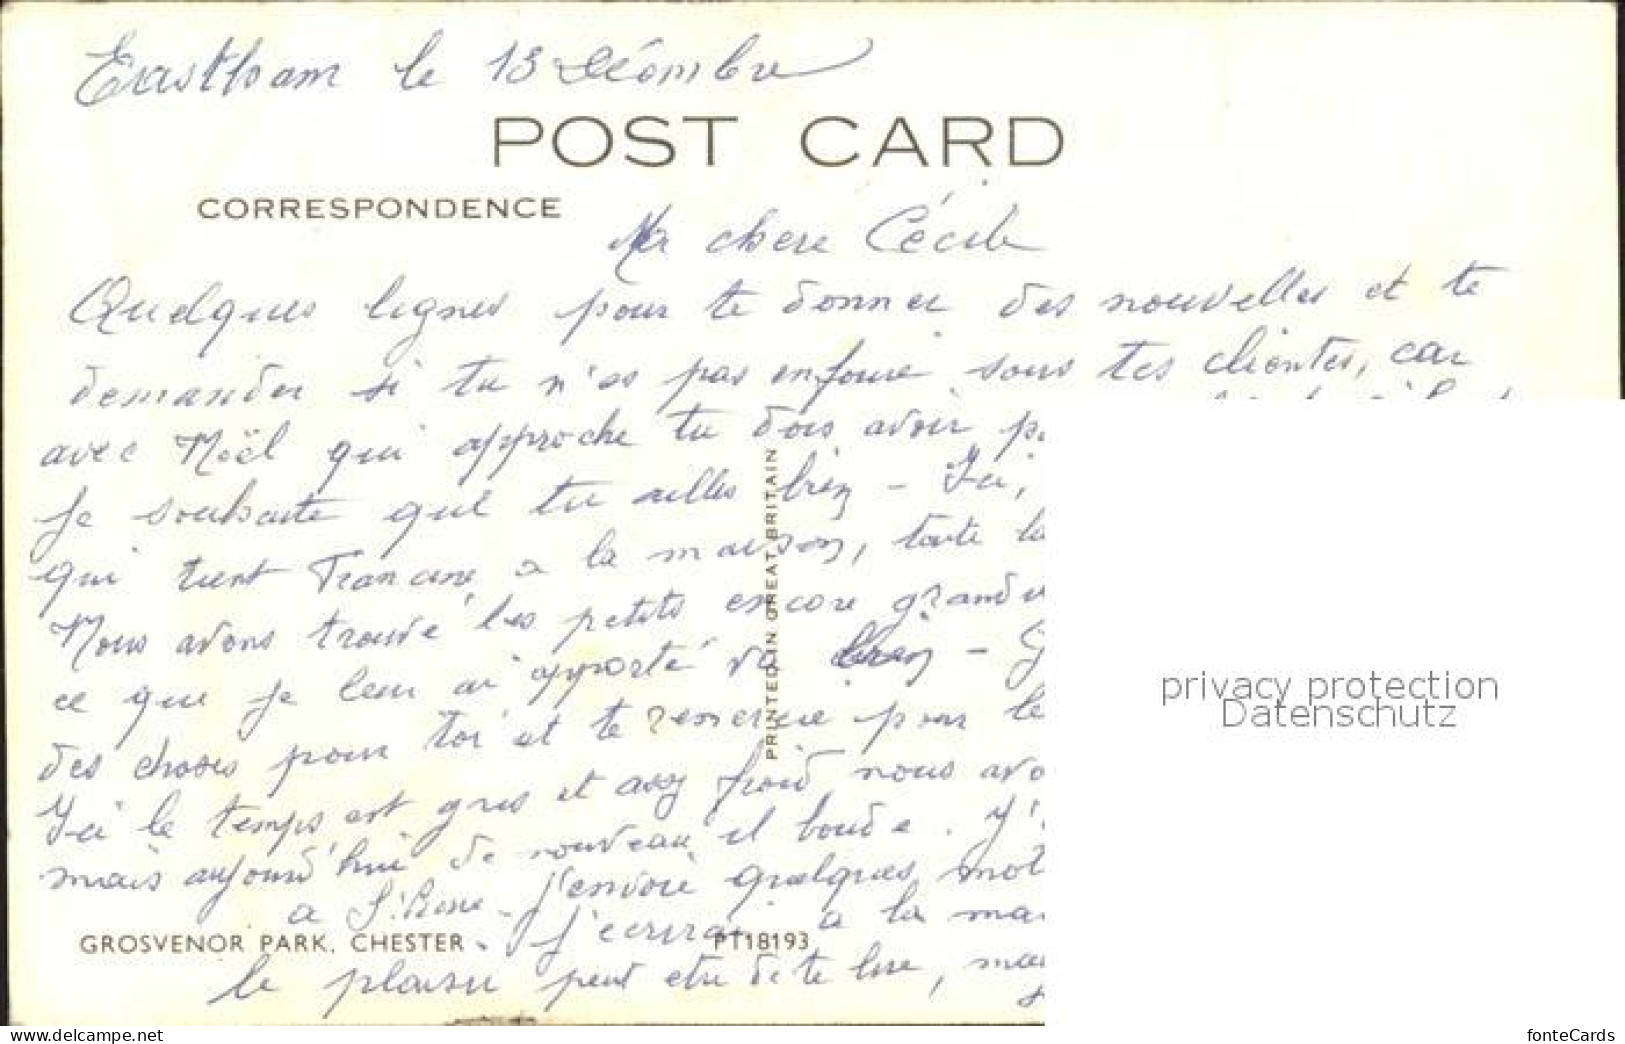 Eastham le 13 Décembre
POST CARD
CORRESPONDENCE
Ma chere Cécile
Quelques lignes pour te donner des nouvelles et te
demander si tu n'es pas enfouie sous tes clientes, car
avec Noël qui approche tu dois avoir
Je souhaite que tu ailles bien - Ici,
qui tient Francine à la maison, toute la
Nous avons trouvé les petits encore
ce que je leur ai apporté va bien -
des choses pour toi et te remercie pour le
Ici le temps est gris et assez froid nous avo
mais aujourd'hui de nouveau il boude. J'
a - J'envoie quelques mot
J'ecrirai a la
le plaisir peut etre de te lire,
PRINTED IN GREAT BRITAIN
GROSVENOR PARK, CHESTER.
PT18193
privacy protection
Datenschutz
www.delcampe.net
fonteCards